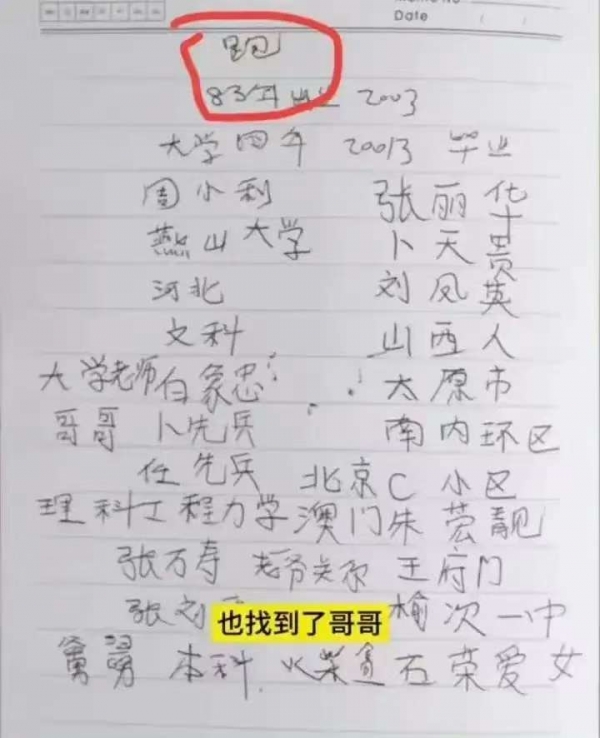 Date
83年出生 2003
大学四年 20013 毕业
周小利 张丽华
燕山大学 卜天贵
河北 刘凤英
文科 山西人
大学老师白象忠! ! 太原市
哥哥 卜先兵 南内环区
任先兵 北京C小区
理科工程力学澳门朱芸靓
张万寿 老爷关系 王府门
张刘 榆次一中
也找到了哥哥
本科 火柴 石荣爱女